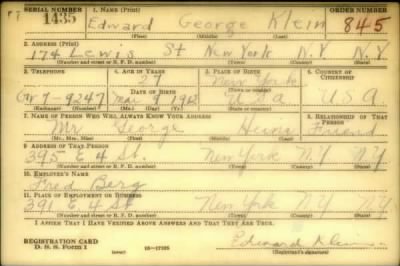 SERIAL NUMBER 1. NAME (Print) ORDER NUMBER
1435 Edward George Klein 845
(First) (Middle) (Last)
2. ADDRESS (Print)
174 Lewis St New York N.Y. N.Y.
(Number and street or R. F. D. number) (Town) (County) (State)
3. TELEPHONE 4. AGE IN YEARS 5. PLACE OF BIRTH 6. COUNTRY OF CITIZENSHIP
27 New York
DATE OF BIRTH
7-9247 USA USA
(Exchange) (Number) (Mo.) (Day) (Yr.) (State or country)
7. NAME OF PERSON WHO WILL ALWAYS KNOW YOUR ADDRESS 8. RELATIONSHIP OF THAT PERSON
Mr. George Friend
(Mr., Mrs., Miss) (First) (Middle) (Last)
9. ADDRESS OF THAT PERSON
395 E 4 St. New York NY NY
(Number and street or R. F. D. number) (Town) (County) (State)
10. EMPLOYER'S NAME
Fred Berg
11. PLACE OF EMPLOYMENT OR BUSINESS
391 E 4 St New York NY NY
(Number and street or R. F. D. number) (Town) (County) (State)
I AFFIRM THAT I HAVE VERIFIED ABOVE ANSWERS AND THAT THEY ARE TRUE.
REGISTRATION CARD
D. S. S. Form 1 (over) 16—17105 Edward Klein
(Registrant's signature)